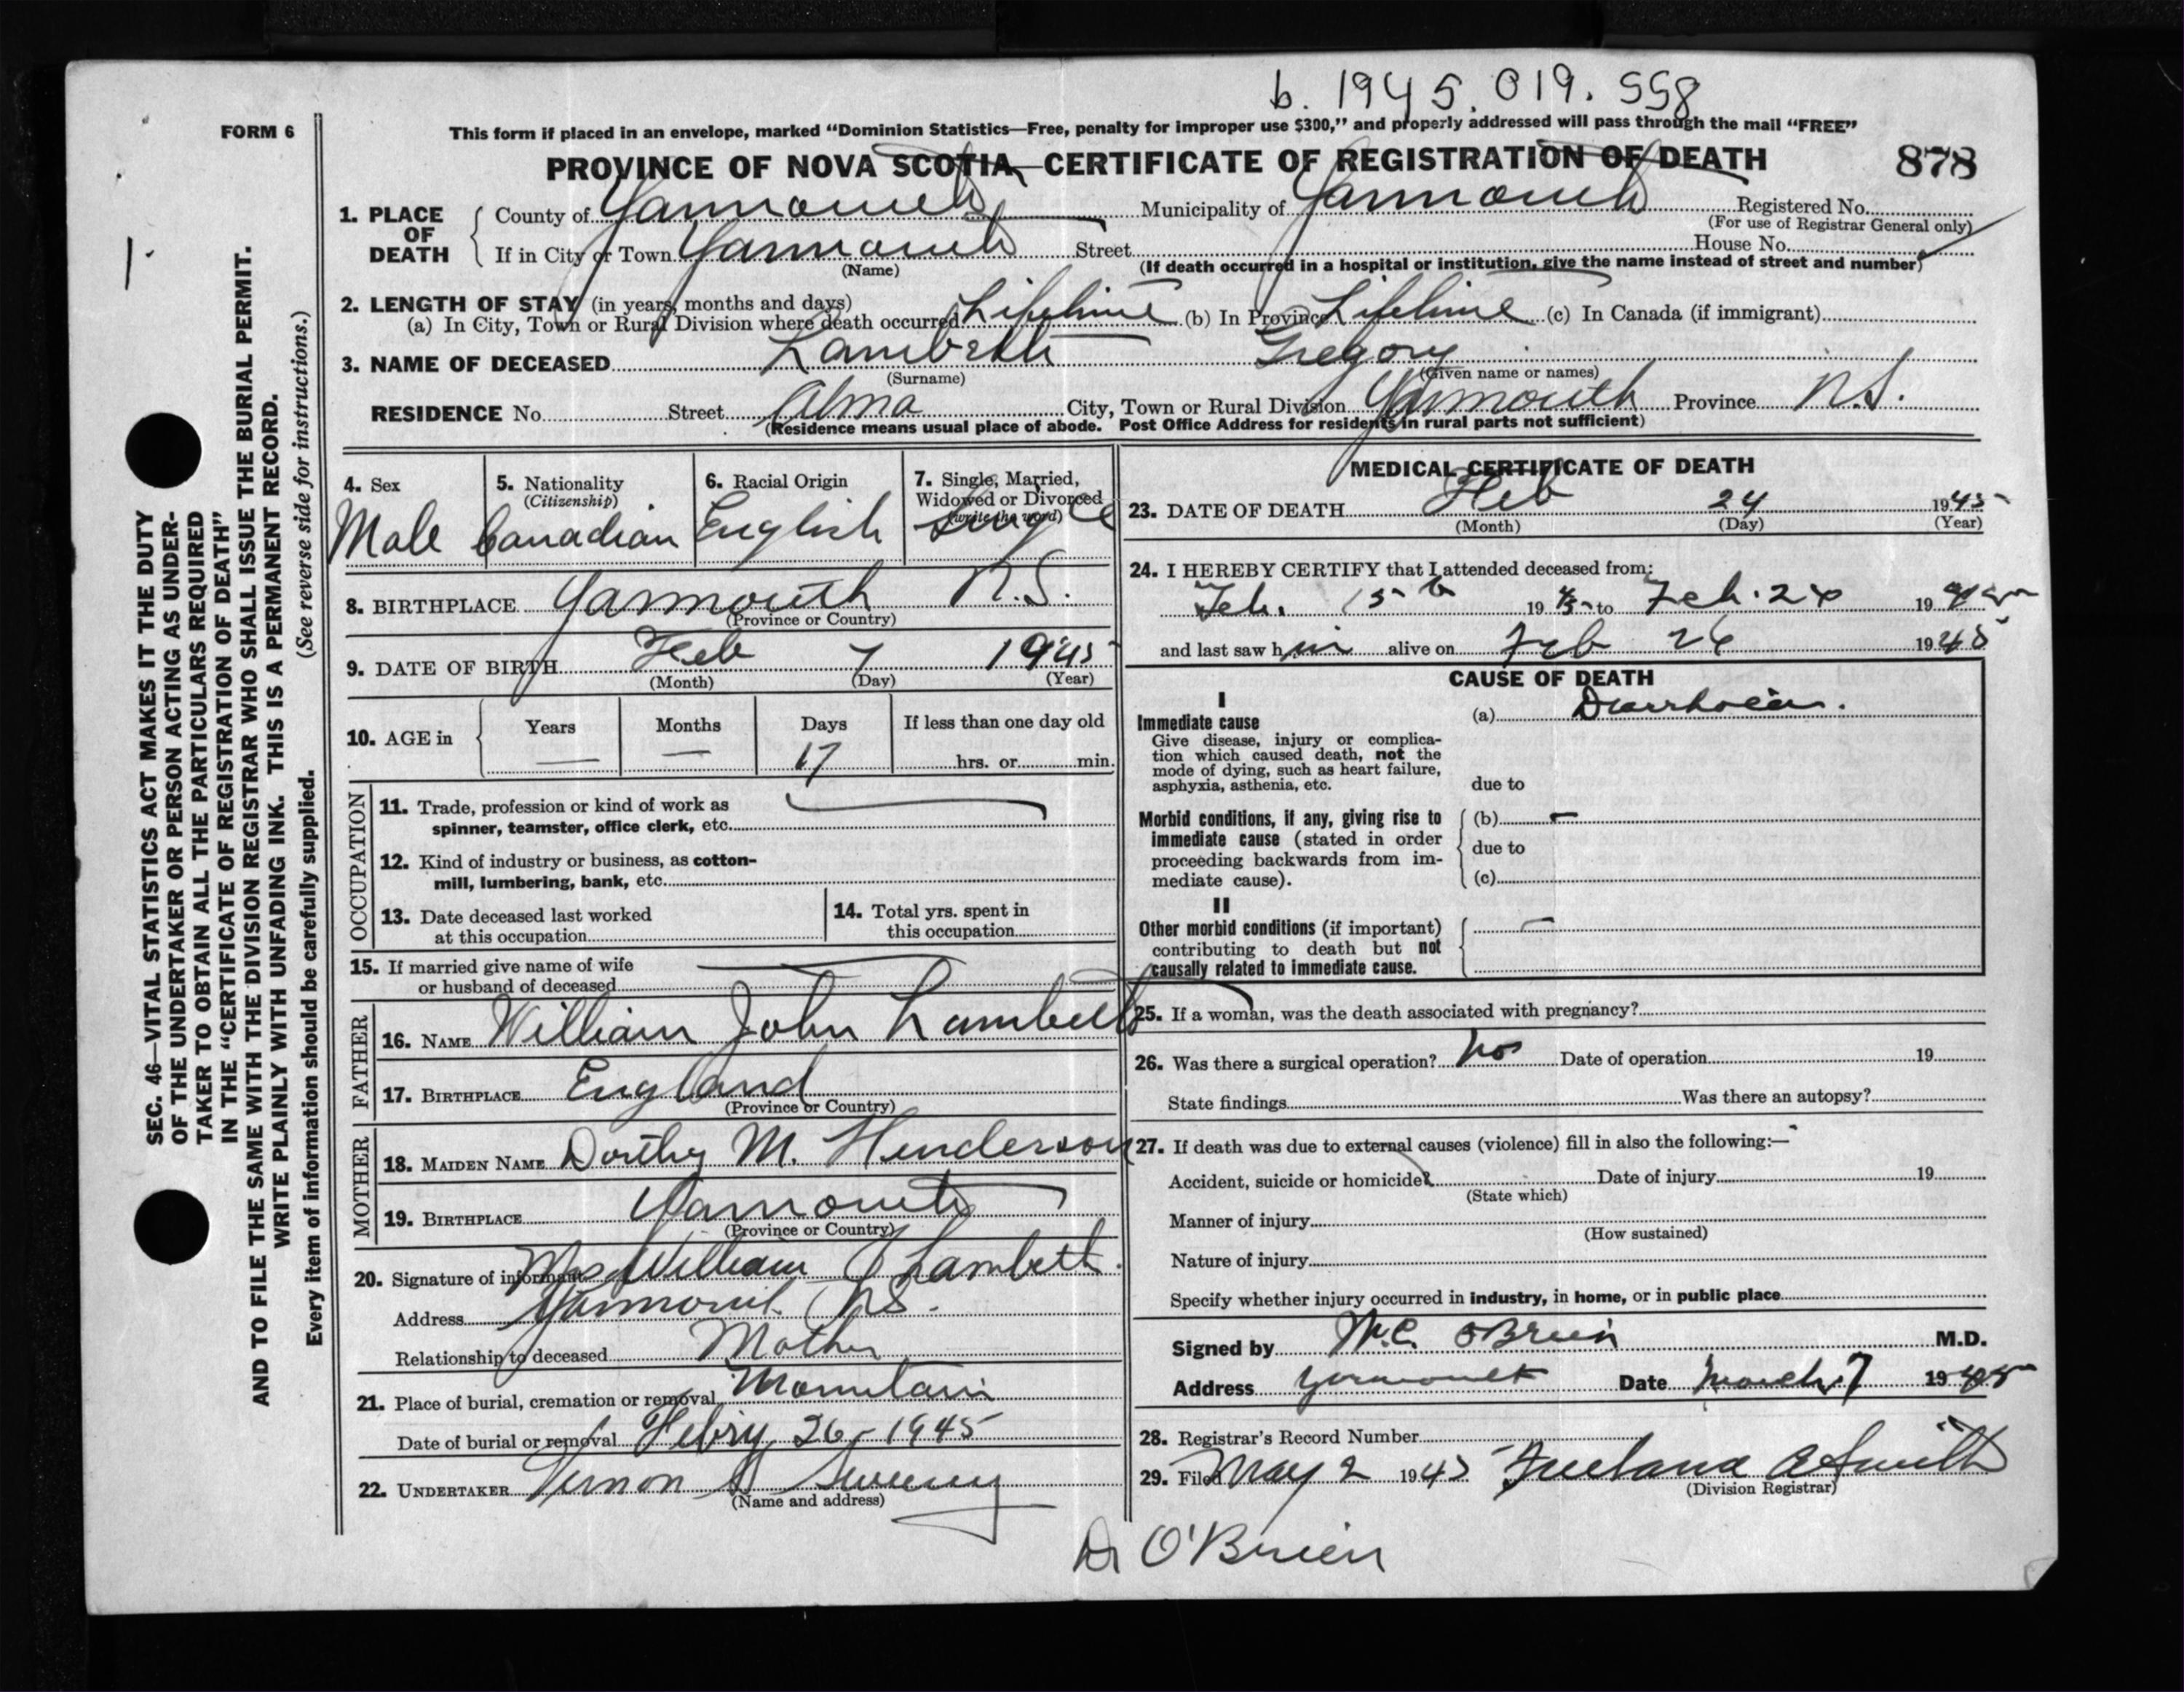 b. 1945.019.558
FORM 6
This form if placed in an envelope, marked “Dominion Statistics—Free, penalty for improper use $300,” and properly addressed will pass through the mail “FREE”
PROVINCE OF NOVA SCOTIA, CERTIFICATE OF REGISTRATION OF DEATH 878
1. PLACE OF DEATH
County of Yarmouth Municipality of Yarmouth Registered No.
(For use of Registrar General only)
If in City or Town Yarmouth Street House No.
(Name) (If death occurred in a hospital or institution, give the name instead of street and number)
2. LENGTH OF STAY (in years, months and days)
(a) In City, Town or Rural Division where death occurred Lifetime (b) In Province Lifetime (c) In Canada (if immigrant)
3. NAME OF DECEASED Lambeth Gregory
(Surname) (Given name or names)
RESIDENCE No. Street Alma City, Town or Rural Division Yarmouth Province N.S.
(Residence means usual place of abode. Post Office Address for residents in rural parts not sufficient)
4. Sex
Male
5. Nationality
(Citizenship)
Canadian
6. Racial Origin
English
7. Single, Married,
Widowed or Divorced
(write the word)
Single
8. BIRTHPLACE Yarmouth N.S.
(Province or Country)
9. DATE OF BIRTH Feb 7 1945
(Month) (Day) (Year)
10. AGE in Years Months Days If less than one day old
— — 17 hrs. or min.
OCCUPATION
11. Trade, profession or kind of work as
spinner, teamster, office clerk, etc.
12. Kind of industry or business, as cotton-
mill, lumbering, bank, etc.
13. Date deceased last worked
at this occupation
14. Total yrs. spent in
this occupation
15. If married give name of wife
or husband of deceased
FATHER
16. NAME William John Lambeth
17. BIRTHPLACE England
(Province or Country)
MOTHER
18. MAIDEN NAME Dorthy M. Henderson
19. BIRTHPLACE Yarmouth
(Province or Country)
20. Signature of informant Mrs William J Lambeth.
Address Yarmouth N.S.
Relationship to deceased Mother
21. Place of burial, cremation or removal Mountain
Date of burial or removal Febry 26, 1945
22. UNDERTAKER Vernon Sweeny
(Name and address)
MEDICAL CERTIFICATE OF DEATH
23. DATE OF DEATH Feb 24 1945
(Month) (Day) (Year)
24. I HEREBY CERTIFY that I attended deceased from:
Feb. 15 1945 to Feb. 24 1945
and last saw him alive on Feb 24 1945
CAUSE OF DEATH
I
Immediate cause
Give disease, injury or complica-
tion which caused death, not the
mode of dying, such as heart failure,
asphyxia, asthenia, etc.
(a) Diarrhoea.
due to
Morbid conditions, if any, giving rise to
immediate cause (stated in order
proceeding backwards from im-
mediate cause).
(b) —
due to
(c)
II
Other morbid conditions (if important)
contributing to death but not
causally related to immediate cause.
25. If a woman, was the death associated with pregnancy?
26. Was there a surgical operation? no Date of operation 19
State findings Was there an autopsy?
27. If death was due to external causes (violence) fill in also the following:—
Accident, suicide or homicide? Date of injury 19
(State which)
Manner of injury
(How sustained)
Nature of injury
Specify whether injury occurred in industry, in home, or in public place
Signed by W.C. O'Brien M.D.
Address Yarmouth Date March 7 1945
28. Registrar's Record Number
29. Filed May 2 1945 Freeland A Smith
(Division Registrar)
Dr O'Brien
1.
SEC. 46—VITAL STATISTICS ACT MAKES IT THE DUTY
OF THE UNDERTAKER OR PERSON ACTING AS UNDER-
TAKER TO OBTAIN ALL THE PARTICULARS REQUIRED
IN THE “CERTIFICATE OF REGISTRATION OF DEATH”
AND TO FILE THE SAME WITH THE DIVISION REGISTRAR WHO SHALL ISSUE THE BURIAL PERMIT.
WRITE PLAINLY WITH UNFADING INK. THIS IS A PERMANENT RECORD.
Every item of information should be carefully supplied. (See reverse side for instructions.)